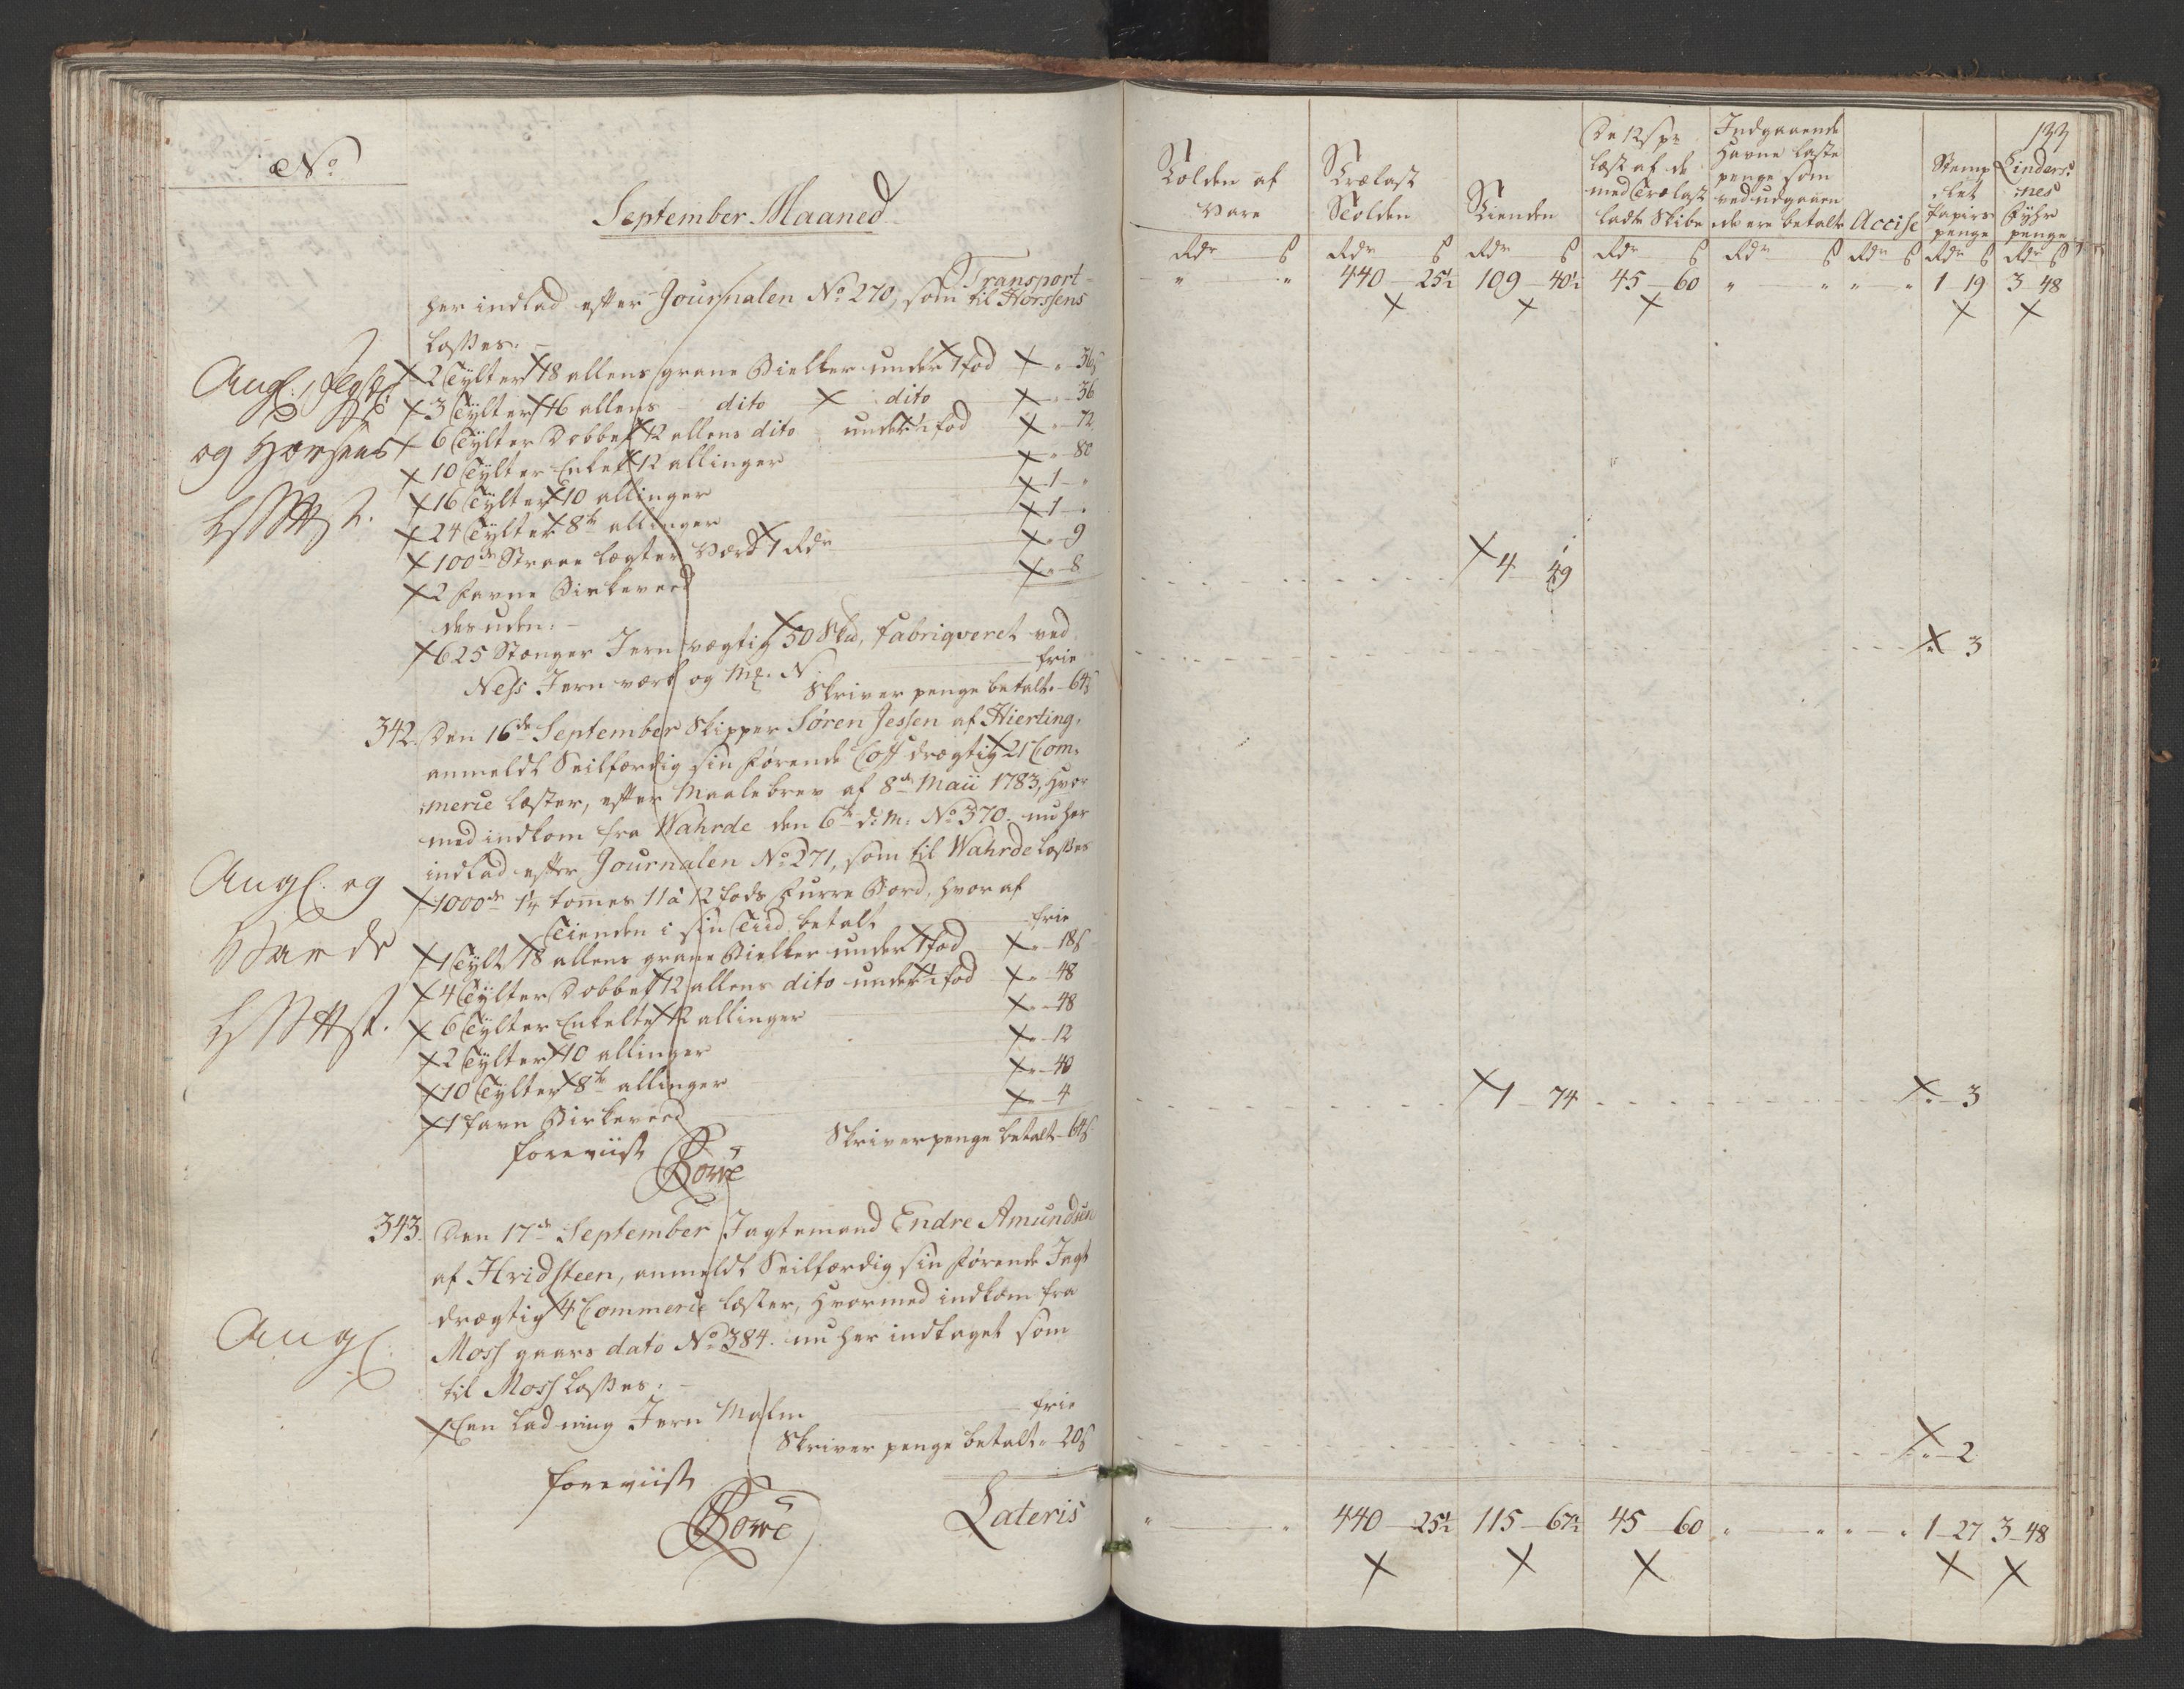 No
September Maaned
Transport
her indlad efter Journalen No 270, som til Horssens
losses.
2 Tylter 18 allens grane Bielker under 1 fod " 36 s
3 Tylter 16 allens dito dito " 36
6 Tylter Dobbelt 12 allens dito under ½ fod " 72
10 Tylter Enkelt 12 allinger " 80
16 Tylter 10 allinger 1 "
24 Tylter 8te allinger 1 "
100de Straae lægter Værd 1 Rdr " 9
2 favne Birkeved " 8
desuden.
625 Stænger Jern vægtig 50 Skd, fabriqveret ved
Ness Jernværk og Mk. N frie
Skriver penge betalt. 64 s
Angl.
og Horsens
342. Den 16de September Skipper Søren Jessen af Hierting,
anmeldt Seilfærdig sin førende Coff drægtig 21 Com:
merce læster, efter Maalebrev af 8de Maii 1783, hvor
med indkom fra Wahrde den 6te d: M: No 370. nu her
indlad efter Journalen No 271, som til Wahrde losses
1000de 1¼ tommes 11 à 12 fods Furre Bord, hvoraf
Tienden i sin Tiid betalt frie
1 Tylt 18 allens grane Bielker under 1 fod " 18 s
4 Tylter Dobbelt 12 allens dito under ½ fod " 48
6 Tylter Enkelte 12 allinger " 48
2 Tylter 10 allinger " 12
10 Tylter 8te allinger " 40
1 favn Birkeved " 4
Skriverpenge betalt 64 s
foreviist
Angl. og
Varde
343. Den 17de September Jagtemand Endre Amundsen
af Hridsteen, anmeldt Seilfærdig sin førende Jagt
drægtig 4 Commerce læster, hvormed indkom fra
Moss gaars dato No 384. nu her indtaget som
til Moss losses.
Een ladning Jern Malm frie
Skriver penge betalt. 20 s
foreviist
Angl.
Lateris
133
Tolden af Vare
Trælast Tolden
Tienden
De 12 s pr læst af de med Trælast ladte Skibe
Indgaaende Havne laste penge som ved udgaaen de ere betalte
Accise
Stemp let Papiirs penge
Linders: nes Fyhr penge
Rdr s Rdr s Rdr s Rdr s Rdr s Rdr s Rdr s Rdr s
" " 440 25½ 109 40½ 45 60 " " " " 1 19 3 48
4 49
" 3
1 74 " 3
" 2
" " 440 25½ 115 67½ 45 60 " " " " 1 27 3 48